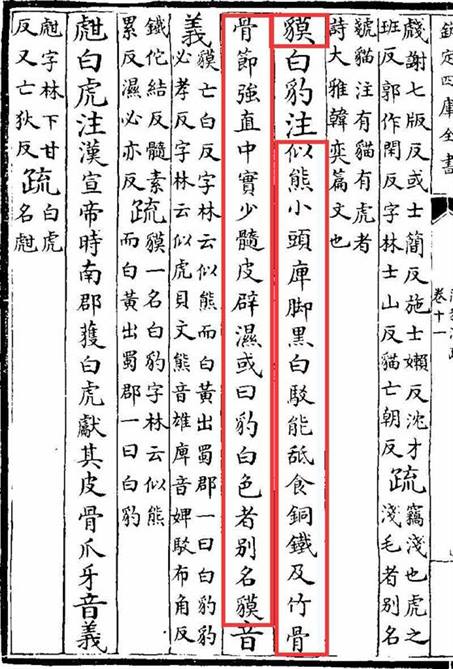 欽定四庫全書
卷十一
虥謝七版反或士簡反施士嬾反沈才
班反郭作閑反字林士山反貓亡朝反
疏
竊淺也虎之
淺毛者别名
號貓注有貓有虎者
詩大雅韓奕篇文也
貘白豹注似熊小頭庳脚黑白駁能舐食銅鐵及竹骨
骨節強直中實少髓皮辟濕或曰豹白色者别名貘音
義
貘亡白反字林云似熊而白黃出蜀郡一曰白豹豹
必孝反字林云似虎貝文熊音雄庳音婢駁布角反
鐵佗結反髓素
累反濕必亦反
疏
貘一名白豹字林云似熊
而白黃出蜀郡一曰白豹
甝白虎注漢宣帝時南郡獲白虎獻其皮骨爪牙音義
甝字林下甘
反又亡狄反
疏
白虎
名甝